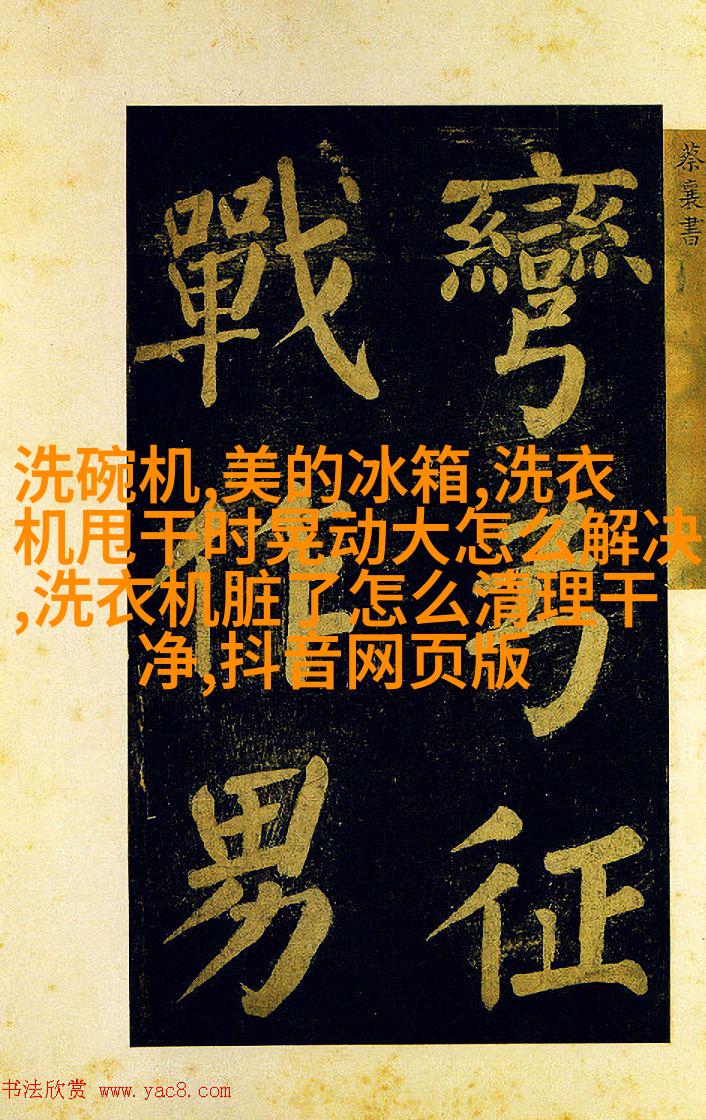 蔡襄書
彎弓征
戰作男
洗碗机,美的冰箱,洗衣
机甩干时晃动大怎么解决
,洗衣机脏了怎么清理干
净,抖音网页版
书法欣赏 www.yac8.com